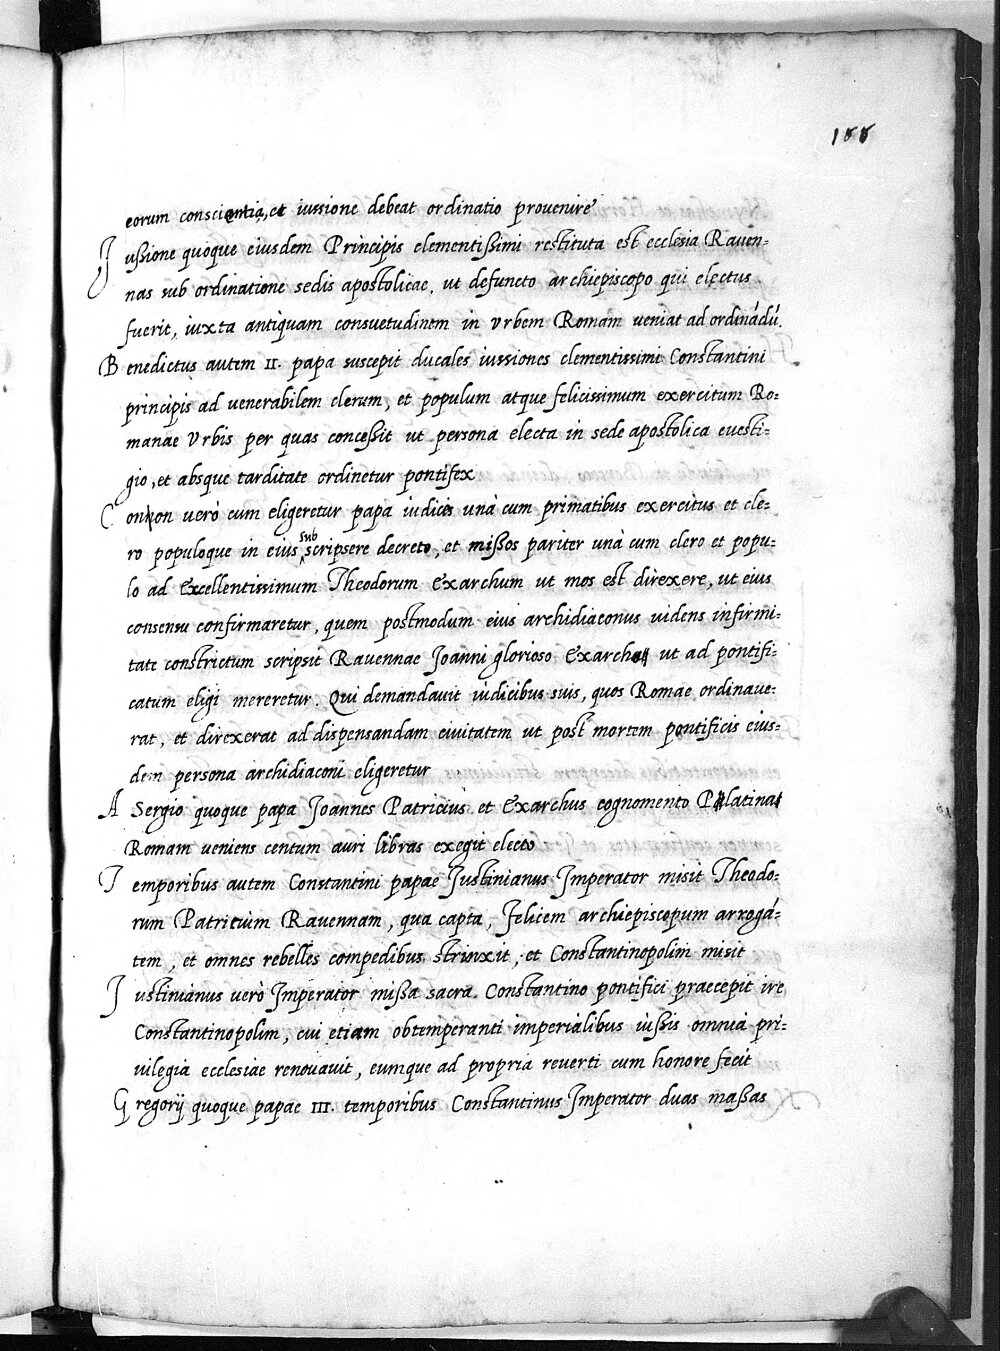 155
eorum conscientia, et iussione debeat ordinatio prouenire
Iussione quoque eiusdem Principis clementissimi restituta est ecclesia Rauen-
nas sub ordinatione sedis apostolicae, ut defuncto archiepiscopo qui electus
fuerit, iuxta antiquam consuetudinem in vrbem Romam ueniat ad ordinādū.
Benedictus autem II. papa suscepit ducales iussiones clementissimi Constantini
principis ad venerabilem clerum, et populum atque felicissimum exercitum Ro-
manae Vrbis per quas concessit ut persona electa in sede apostolica euesti-
gio, et absque tarditate ordinetur pontifex
Conon verò cum eligeretur papa iudices unà cum primatibus exercitus et cle-
ro populoque in eius subscripsere decreto, et missos pariter unà cum clero et popu-
lo ad Excellentissimum Theodorum Exarchum ut mos est direxere, ut eius
consensu confirmaretur, quem postmodum eius archidiaconus uidens infirmi-
tate constrictum scripsit Rauennae Joanni glorioso Exarcho ut ad pontifi-
catum eligi mereretur. Qui demandauit iudicibus suis, quos Romae ordinaue-
rat, et direxerat ad dispensandam ciuitatem ut post mortem pontificis eius-
dem persona archidiaconi eligeretur
A Sergio quoque papa Joannes Patricius et Exarchus cognomento Platina
Romam veniens centum auri libras exegit electo
Temporibus autem Constantini papae Justinianus Imperator misit Theodo-
rum Patritium Rauennam, qua capta, felicem archiepiscopum arrogā-
tem, et omnes rebelles compedibus strinxit, et Constantinopolim misit
Iustinianus verò Imperator missa sacra Constantino pontifici praecepit ire
Constantinopolim, cui etiam obtemperanti imperialibus iussis omnia pri-
uilegia ecclesiae renouauit, eumque ad propria reuerti cum honore fecit
Gregorij quoque papae III. temporibus Constantinus Imperator duas massas